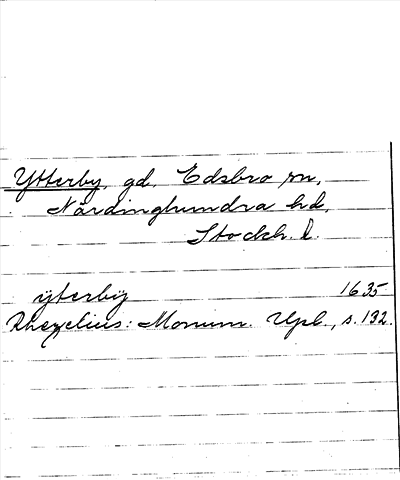 Ytterby, gd, Edsbro sn,
Närdinghundra hd,
Stockh. l.
ÿterbÿ 1635
Rhezelius: Monum. Upl., s. 132.